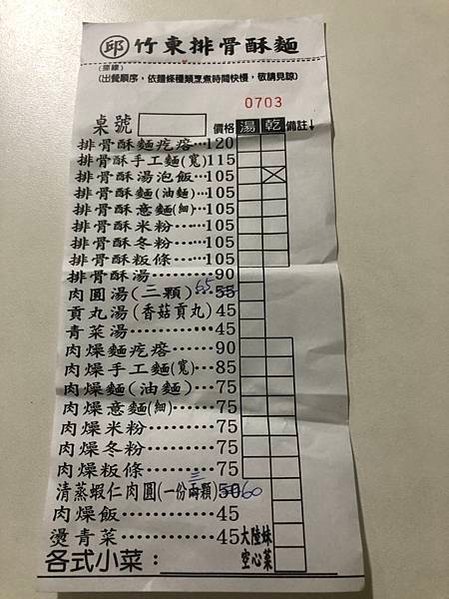 邱 竹東排骨酥麵
(虛線)
(出餐順序，依麵條種類烹煮時間快慢，敬請見諒)
0703
桌號 價格 湯 乾 備註↓
排骨酥麵疙瘩…120
排骨酥手工麵(寬)115
排骨酥湯泡飯…105
排骨酥麵(油麵)…105
排骨酥意麵(細)…105
排骨酥米粉……105
排骨酥冬粉……105
排骨酥粄條……105
排骨酥湯………90
肉圓湯(三顆)……55 65
貢丸湯(香菇貢丸)45
青菜湯…………45
肉燥麵疙瘩……90
肉燥手工麵(寬)…85
肉燥麵(油麵)……75
肉燥意麵(細)……75
肉燥米粉………75
肉燥冬粉………75
肉燥粄條………75
清蒸蝦仁肉圓(一份兩顆)50 三 60
肉燥飯…………45
燙青菜…………45 大陸妹 空心菜
各式小菜：